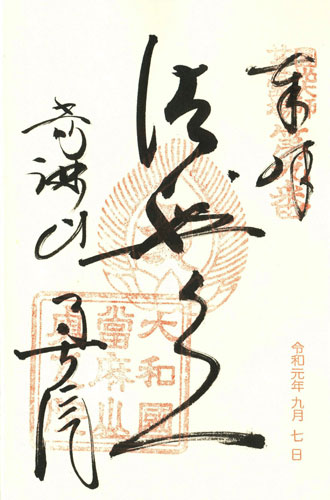 奉拝
法然上人
當麻山
奥院
大和國
當麻山
令和元年九月七日